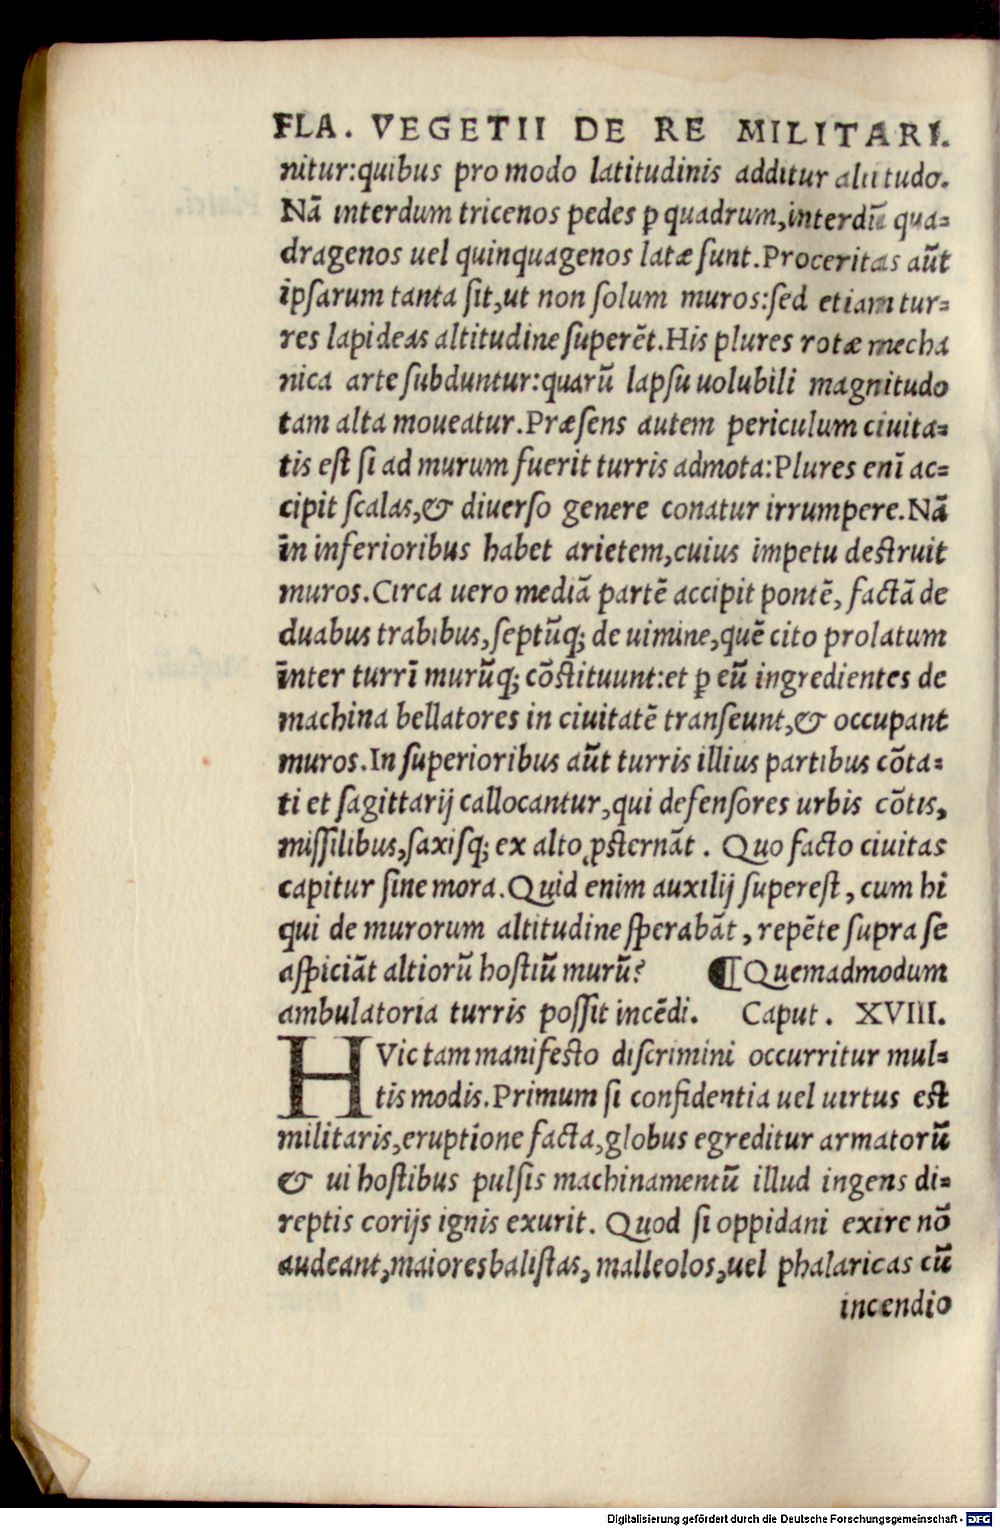 FLA. VEGETII DE RE MILITARI.
nitur:quibus pro modo latitudinis additur altitudo.
Nã interdum tricenos pedes ꝑ quadrum,interdũ qua-
dragenos uel quinquagenos latæ sunt.Proceritas aũt
ipsarum tanta sit,ut non solum muros:sed etiam tur-
res lapideas altitudine superẽt.His plures rotæ mecha
nica arte subduntur:quarũ lapsu uolubili magnitudo
tam alta moueatur.Præsens autem periculum ciuita-
tis est si ad murum fuerit turris admota:Plures enĩ ac-
cipit scalas,& diuerso genere conatur irrumpere.Nã
ĩn inferioribus habet arietem,cuius impetu destruit
muros.Circa uero mediã partẽ accipit pontẽ, factã de
duabus trabibus,septũq; de uimine,quẽ cito prolatum
ĩnter turrĩ murũq; cõstituunt:et ꝑ eũ ingredientes de
machina bellatores in ciuitatẽ transeunt,& occupant
muros.In superioribus aũt turris illius partibus cõta-
ti et sagittarij callocantur,qui defensores urbis cõtis,
missilibus,saxisq; ex alto ꝓsternãt. Quo facto ciuitas
capitur sine mora.Quid enim auxilij superest, cum hi
qui de murorum altitudine sperabãt, repẽte supra se
aspiciãt altiorũ hostiũ murũ? ¶Quemadmodum
ambulatoria turris possit incẽdi. Caput. XVIII.
HVic tam manifesto discrimini occurritur mul-
tis modis.Primum si confidentia uel uirtus est
militaris,eruptione facta,globus egreditur armatorũ
& ui hostibus pulsis machinamentũ illud ingens di-
reptis corijs ignis exurit. Quod si oppidani exire nõ
audeant,maiores balistas, malleolos,uel phalaricas cũ
incendio
Digitalisierung gefördert durch die Deutsche Forschungsgemeinschaft - DFG